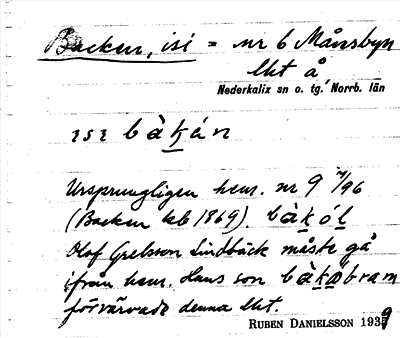 Backen, isi = nr 6 Månsbyn
lht å
Nederkalix sn o. tg, Norrb. län
ısı bàḵán
Ursprungligen hem. nr 9 7/96
(Backen lht 1869). bàḵóḻ
Olof Grelsson Lindbäck måste gå
ifrån hem. Hans son bàḵa̱bram
förvärvade denna lht.
RUBEN DANIELSSON 1939